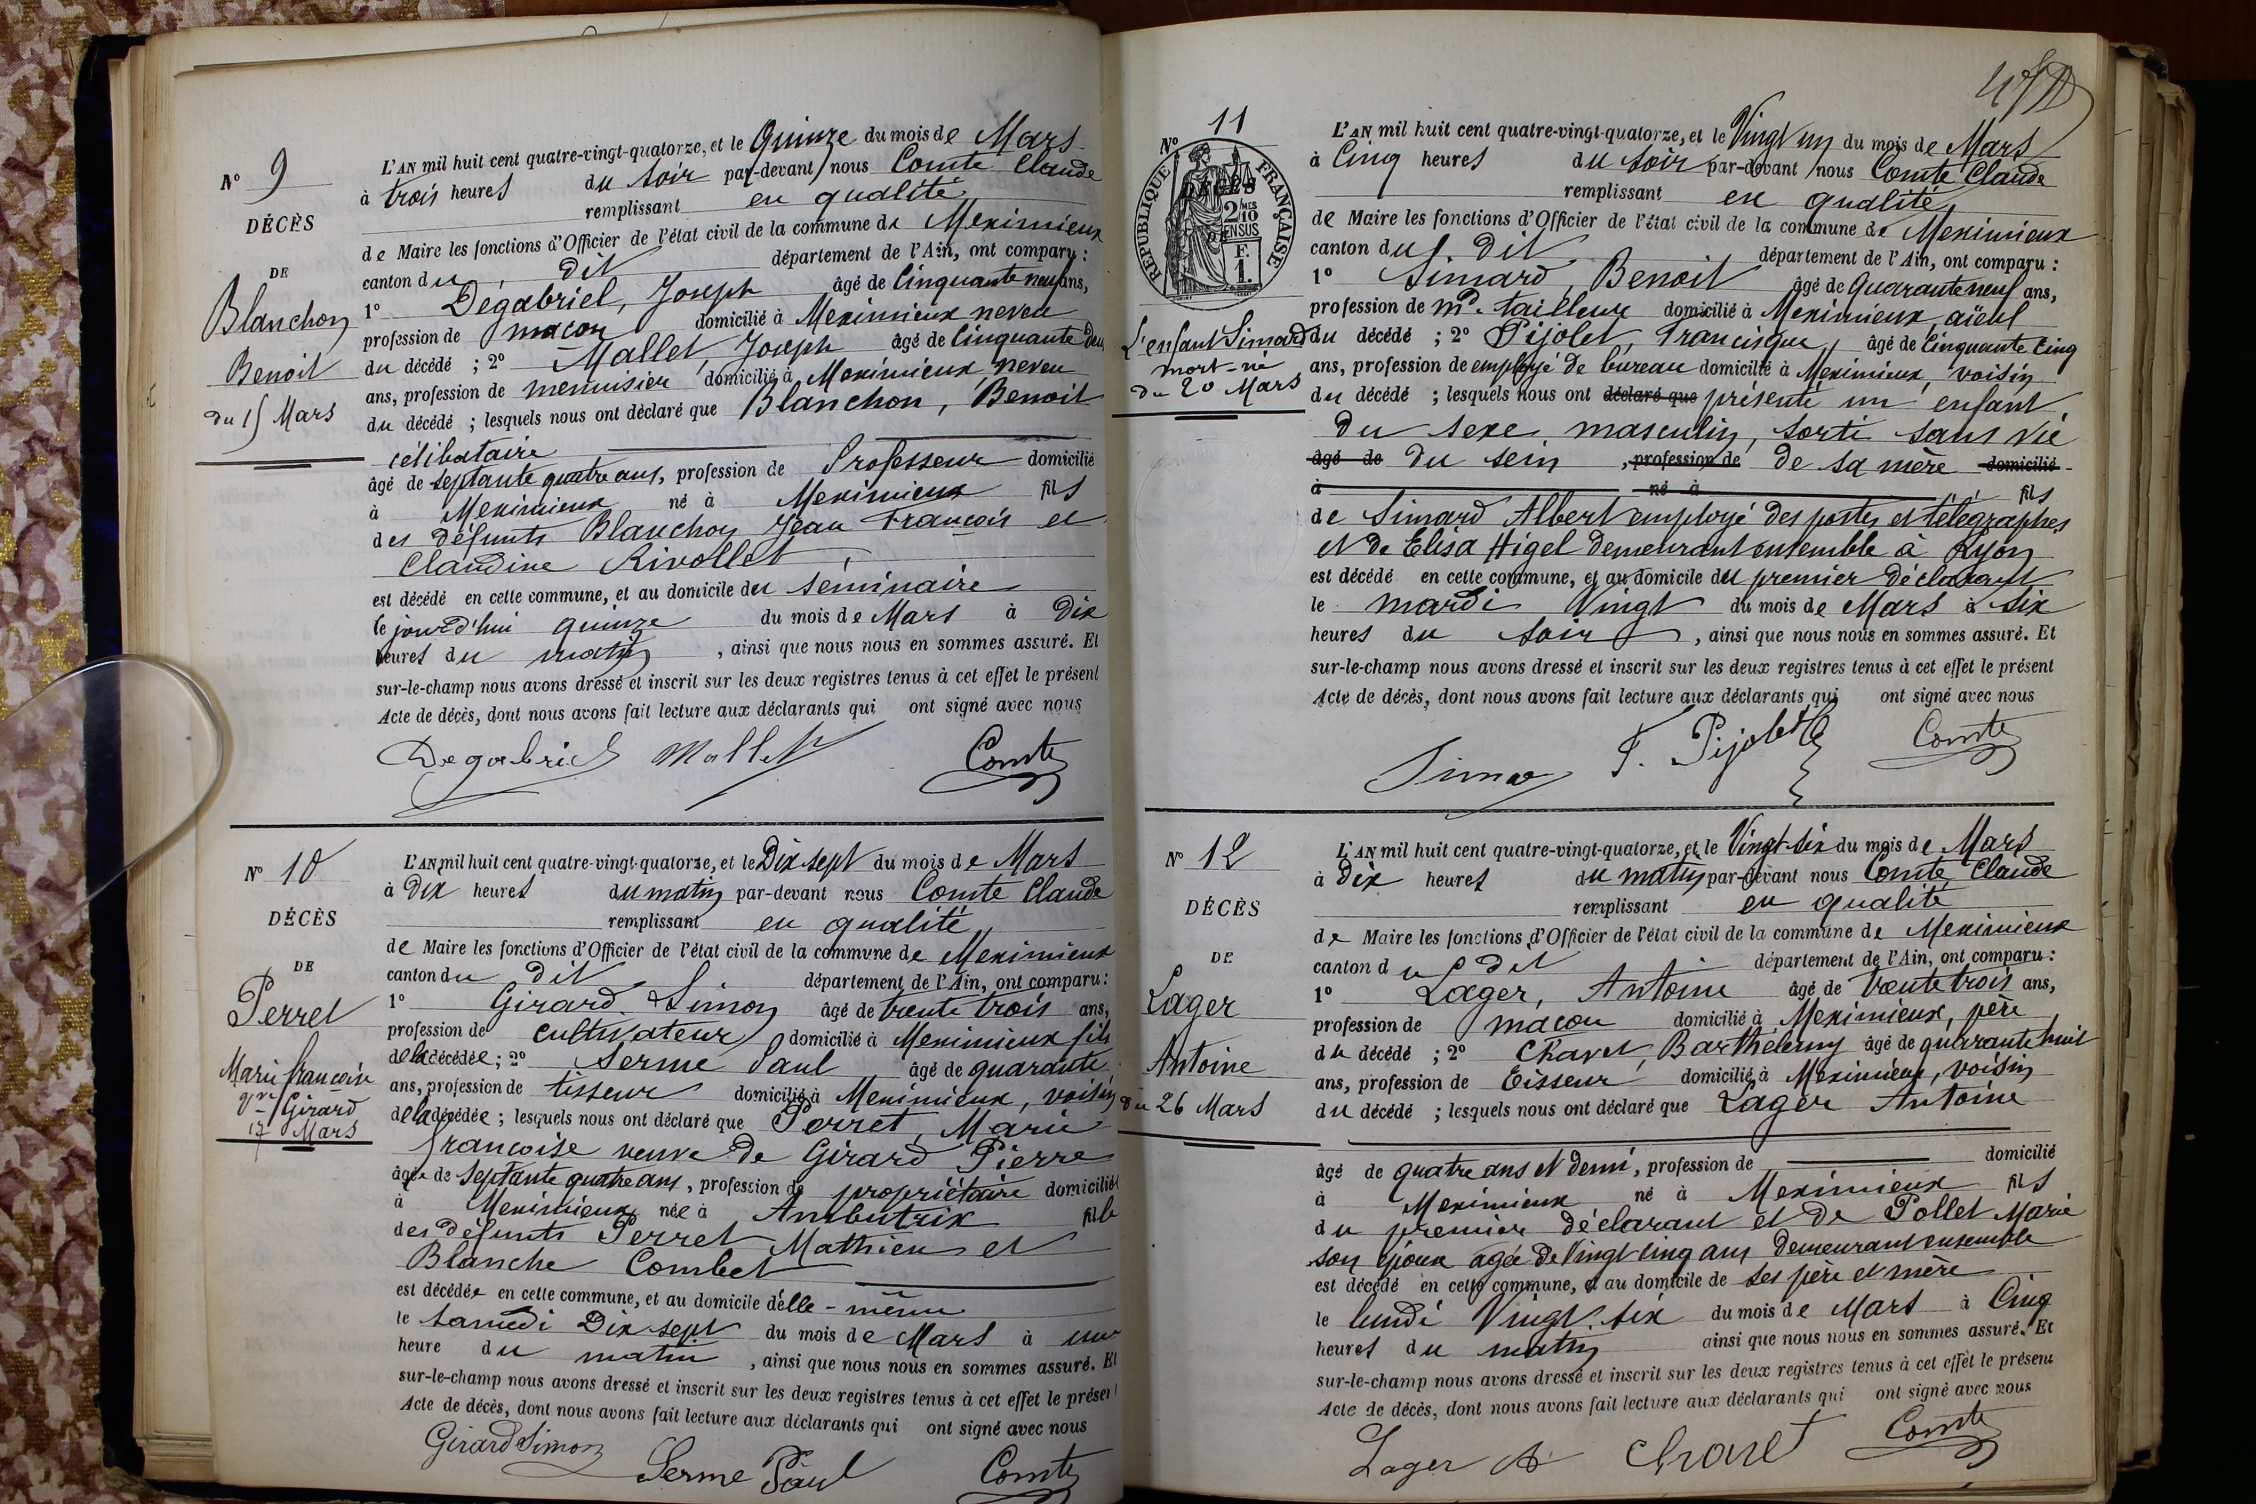 N° 9
DÉCÈS
DE
Blanchon
Benoit
du 15 Mars
L'AN mil huit cent quatre-vingt-quatorze, et le Quinze du mois de Mars
à trois heures du soir par-devant nous Comte Claude
remplissant en qualité
de Maire les fonctions d'Officier de l'état civil de la commune de Meximieux
canton du dit département de l'Ain, ont comparu :
1° Dégabriel, Joseph âgé de Cinquante neuf ans,
profession de maçon domicilié à Meximieux neveu
du décédé ; 2° Mallet, Joseph âgé de Cinquante deux
ans, profession de menuisier domicilié à Meximieux neveu
du décédé ; lesquels nous ont déclaré que Blanchon, Benoit
célibataire
âgé de septante quatre ans, profession de Professeur domicilié
à Meximieux né à Meximieux fils
des défunts Blanchon Jean François et
Claudine Rivollet
est décédé en cette commune, et au domicile du séminaire
le jourd'hui quinze du mois de Mars à Dix
heures du matin, ainsi que nous nous en sommes assuré. Et
sur-le-champ nous avons dressé et inscrit sur les deux registres tenus à cet effet le présent
Acte de décès, dont nous avons fait lecture aux déclarants qui ont signé avec nous
Degabriel Mallet Comte
N° 10
DÉCÈS
DE
Perret
Marie françoise
vve Girard
17 Mars
L'AN mil huit cent quatre-vingt-quatorze, et le Dix sept du mois de Mars
à Dix heures du matin par-devant nous Comte Claude
remplissant en qualité
de Maire les fonctions d'Officier de l'état civil de la commune de Meximieux
canton du dit département de l'Ain, ont comparu :
1° Girard Simon âgé de trente trois ans,
profession de cultivateur domicilié à Meximieux fils
de la décédée ; 2° Serme Paul âgé de quarante
ans, profession de tisseur domicilié à Meximieux, voisin
de la décédée ; lesquels nous ont déclaré que Perret, Marie
françoise veuve de Girard Pierre
âgée de septante quatre ans, profession de propriétaire domicilié
à Meximieux née à Ambutrix fille
des défunts Perret Mathieu et
Blanche Combet
est décédée en cette commune, et au domicile d'elle-même
le samedi Dix sept du mois de Mars à une
heure du matin, ainsi que nous nous en sommes assuré. Et
sur-le-champ nous avons dressé et inscrit sur les deux registres tenus à cet effet le présent
Acte de décès, dont nous avons fait lecture aux déclarants qui ont signé avec nous
Girard Simon Serme Paul Comte
N° 11
RÉPUBLIQUE FRANÇAISE
DÉCÈS
2/10 MES
EN SUS
F.
1
L'enfant Simard
mort-né
du 20 Mars
L'AN mil huit cent quatre-vingt-quatorze, et le Vingt un du mois de Mars
à Cinq heures du soir par-devant nous Comte Claude
remplissant en qualité
de Maire les fonctions d'Officier de l'état civil de la commune de Meximieux
canton du dit département de l'Ain, ont comparu :
1° Simard, Benoit âgé de Quarante neuf ans,
profession de md. tailleur domicilié à Meximieux, aïeul
du décédé ; 2° Pijolet, Francisque, âgé de Cinquante Cinq
ans, profession de employé de bureau domicilié à Meximieux, voisin
du décédé ; lesquels nous ont déclaré que présenté un enfant
du sexe masculin, sorti sans vie
âgé de du sein, profession de de sa mère domicilié
à né à fils
de Simard Albert employé des postes et télégraphes
et de Elisa Higel demeurant ensemble à Lyon
est décédé en cette commune, et au domicile du premier déclarant
le mardi Vingt du mois de Mars à six
heures du soir, ainsi que nous nous en sommes assuré. Et
sur-le-champ nous avons dressé et inscrit sur les deux registres tenus à cet effet le présent
Acte de décès, dont nous avons fait lecture aux déclarants qui ont signé avec nous
F. Pijolet Comte
N° 12
DÉCÈS
DE
Lager
Antoine
du 26 Mars
L'AN mil huit cent quatre-vingt-quatorze, et le Vingt-six du mois de Mars
à Dix heures du matin par-devant nous Comte Claude
remplissant en qualité
de Maire les fonctions d'Officier de l'état civil de la commune de Meximieux
canton du dit département de l'Ain, ont comparu :
1° Lager, Antoine âgé de trente trois ans,
profession de maçon domicilié à Meximieux, père
du décédé ; 2° Chavet, Barthélemy âgé de quarante huit
ans, profession de Tisseur domicilié à Meximieux, voisin
du décédé ; lesquels nous ont déclaré que Lager Antoine
âgé de quatre ans et demi, profession de domicilié
à Meximieux né à Meximieux fils
du premier déclarant et de Pollet Marie
son épouse agée de Vingt cinq ans demeurant ensemble
est décédé en cette commune, et au domicile de ses père et mère
le lundi Vingt-six du mois de Mars à Cinq
heures du matin ainsi que nous nous en sommes assuré. Et
sur-le-champ nous avons dressé et inscrit sur les deux registres tenus à cet effet le présent
Acte de décès, dont nous avons fait lecture aux déclarants qui ont signé avec nous
Lager A Chavet Comte